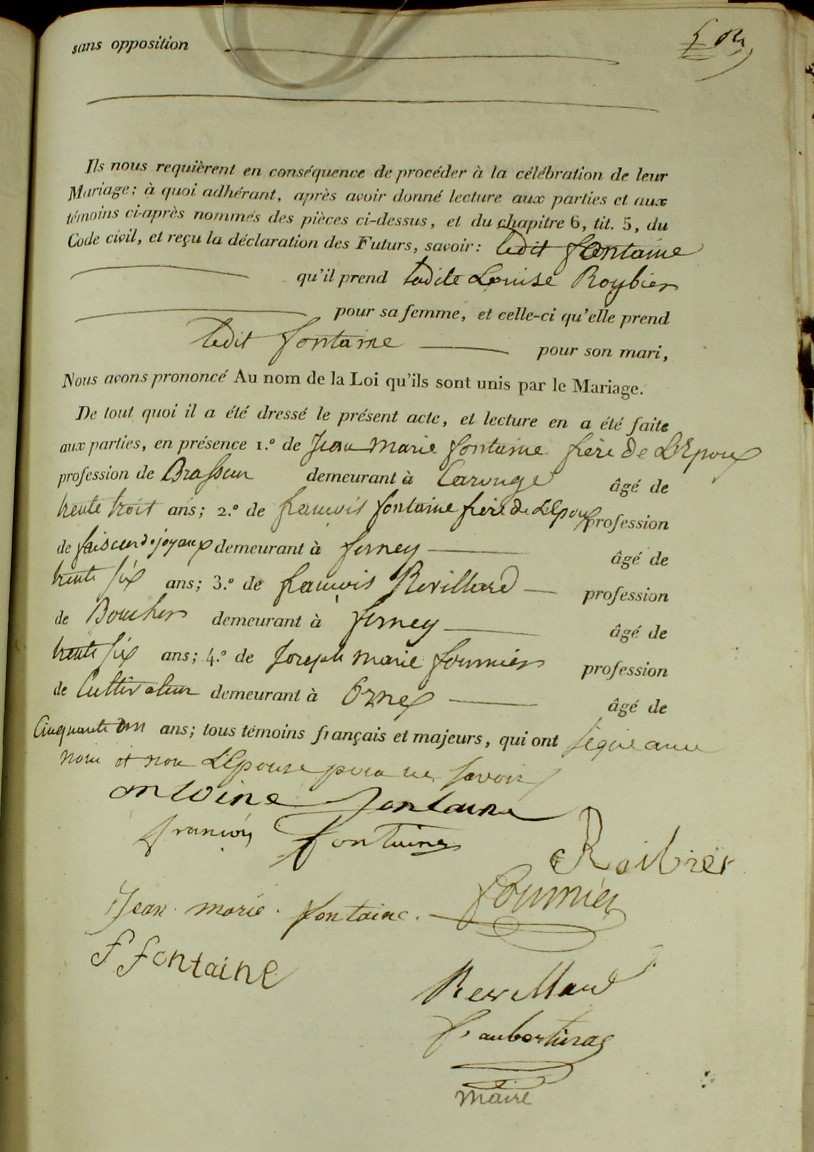 sans opposition
Ils nous requièrent en conséquence de procéder à la célébration de leur
Mariage; à quoi adhérant, après avoir donné lecture aux parties et aux
témoins ci-après nommés des pièces ci-dessus, et du chapitre 6, tit. 5, du
Code civil, et reçu la déclaration des Futurs, savoir: ledit fontaine
qu'il prend ladite Louise Roybier
pour sa femme, et celle-ci qu'elle prend
ledit fontaine pour son mari,
Nous avons prononcé Au nom de la Loi qu'ils sont unis par le Mariage.
De tout quoi il a été dressé le présent acte, et lecture en a été faite
aux parties, en présence 1.º de Jean Marie fontaine frère de L'Epoux
profession de Brasseur demeurant à Carouge âgé de
trente trois ans; 2.º de françois fontaine frère de L'Epoux profession
de faiseur de joyaux demeurant à ferney âgé de
trente six ans; 3.º de françois Revillard profession
de Boucher demeurant à ferney âgé de
trente six ans; 4.º de Joseph marie fournier profession
de Cultivateur demeurant à Ornex âgé de
Cinquante un ans; tous témoins français et majeurs, qui ont signé avec
nous et non L'Epouse pour ne savoir
antoine fontaine
françois fontaine
Roibier
Jean marie fontaine
fournier
f fontaine
Revillard
maire